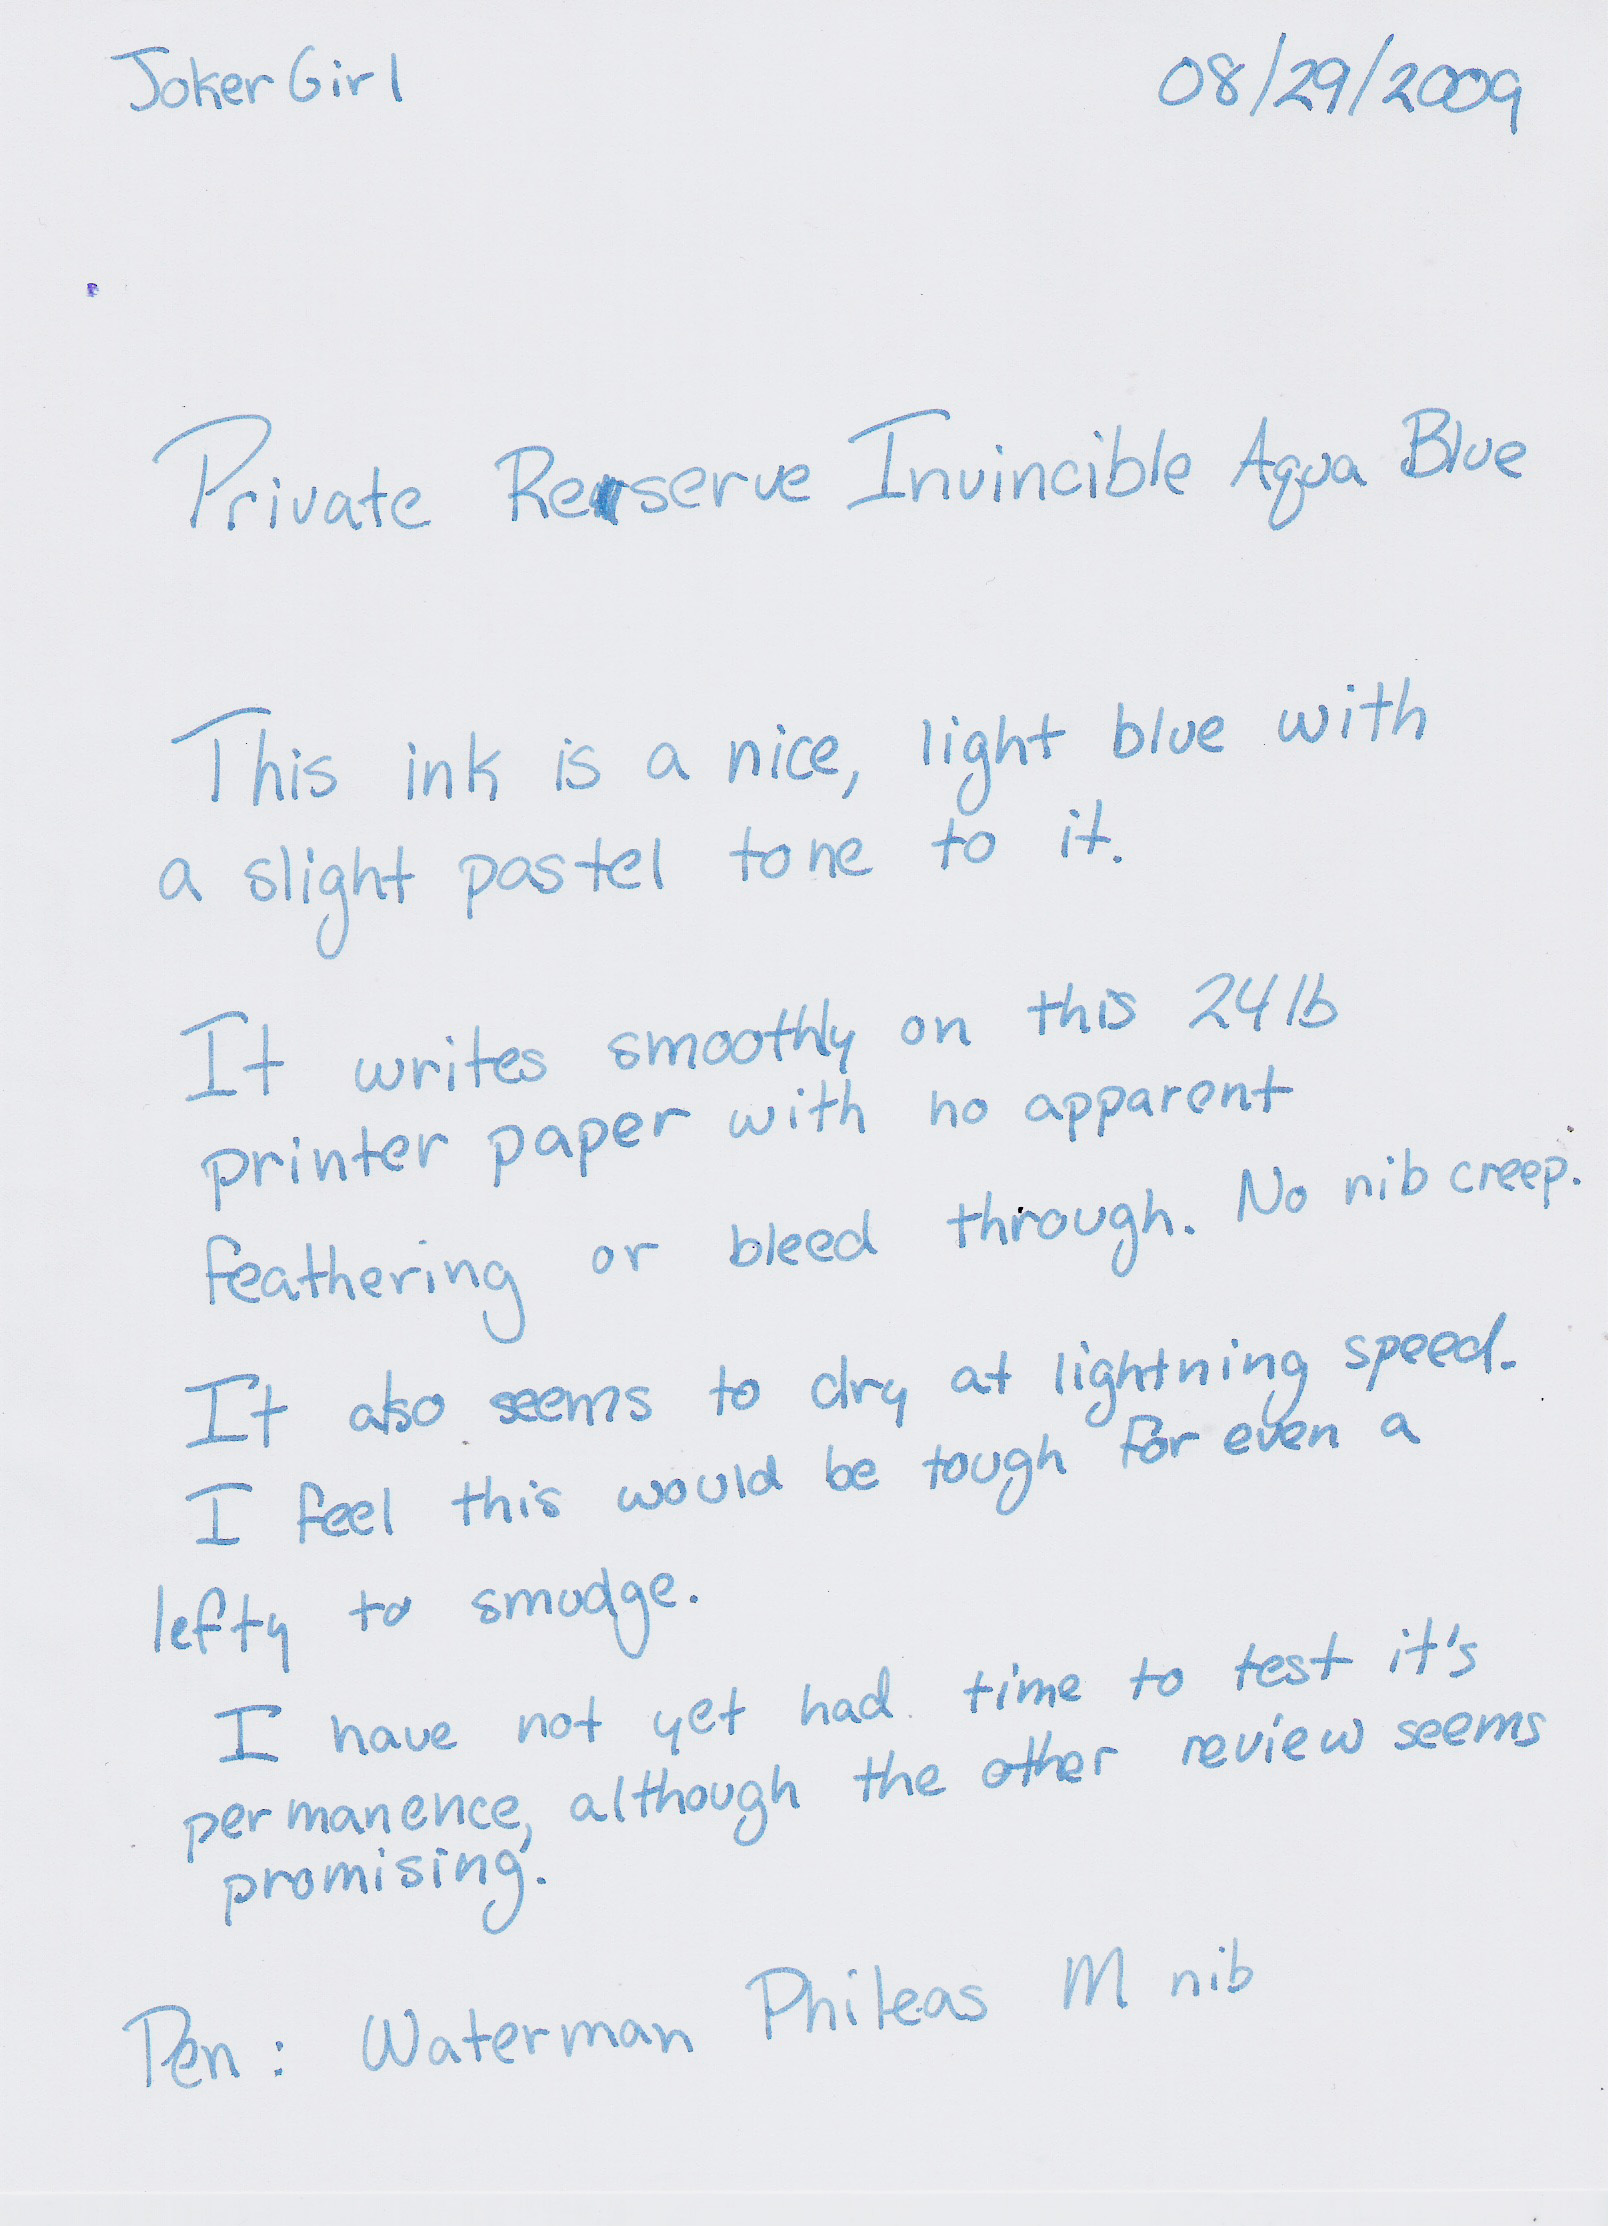 JokerGirl 08/29/2009
Private Reserve Invincible Aqua Blue
This ink is a nice, light blue with
a slight pastel tone to it.
It writes smoothly on this 24lb
printer paper with no apparent
feathering or bleed through. No nib creep.
It also seems to dry at lightning speed.
I feel this would be tough for even a
lefty to smudge.
I have not yet had time to test it's
permanence, although the other review seems
promising.
Pen: Waterman Phileas M nib